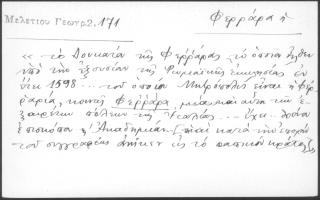 Μελετίου Γεωγρ 2, 171
Φερράρα ἡ
« τὸ Δουκάτον τῆς Φερράρας, τὸ ὁποῖον ἦλθεν
ὑπὸ τὴν ἐξουσίαν τῆς Ῥωμαϊκῆς Ἐκκλησίας ἐν
ἔτει 1598 ... τοῦ ὁποίου Μητρόπολις εἶναι ἡ Φερ
ραρία, κοινῶς Φερράρα, μία καὶ αὕτη τῶν ἐ-
ξαιρέτων πόλεων τῆς Ἰταλίας ... ἔχει θρόνον
Ἐπισκόπου, καὶ Ἀκαδημίαν [
κατὰ τὴν ἐποχὴν
τοῦ συγγραφέως ἀνῆκεν εἰς τὸ παπικὸν κράτος]